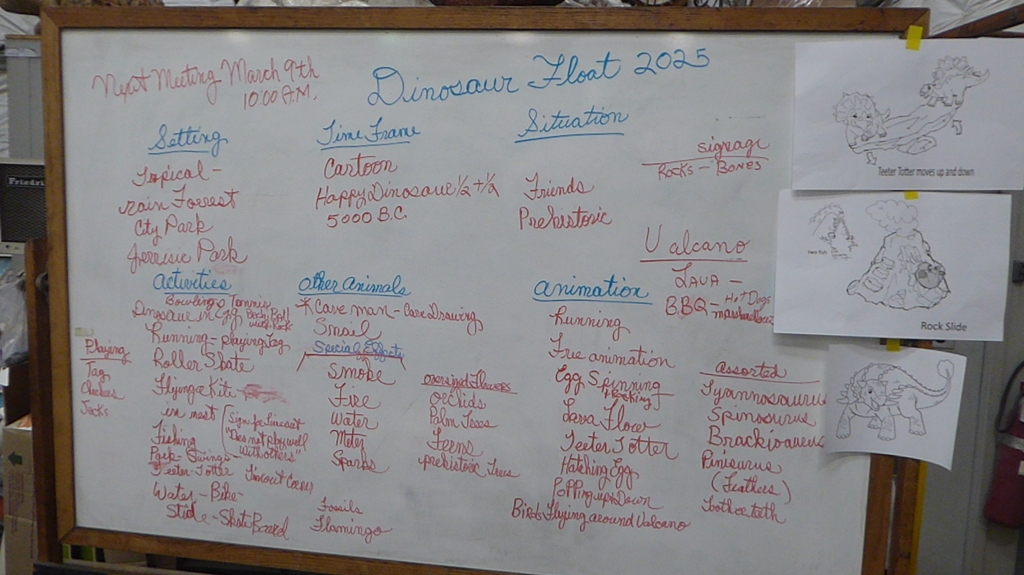 Next Meeting March 9th
10:00 A.M.
Dinosaur Float 2025
Setting
Topical -
rain Forrest
City Park
Jerrisic Park
Time Frame
Cartoon
Happy Dinosaur 1/2 + 1/2
5000 B.C.
Situation
Friends
Prehistoric
signage
Rocks - Bones
Valcano
LAVA -
BBQ - Hot Dogs
Activities
Bowling Tennis
Dinosaur in Egg Beach Ball
with Rock
Running - playing tag
Roller Skate
Flying a Kite
in nest
Sign for Timeout
"Does not play well
with others"
Fishing
Park - Swings
Teeter-Totter
Timeout Corner
Water - Bike -
Slide - Skate Board
Playing
Tag
Checkers
Jacks
Other Animals
Cave man - Cave Drawing
Snail
Special Effects
Smoke
Fire
Water
Meter
Sparks
Fossils
Flamingo
oversized Flowers
orchids
Palm Trees
Ferns
prehistoric Trees
animation
Running
Free animation
Egg Spinning
& Rocking
Lava Flow
Teeter Totter
Hatching Egg
Popping up & Down
Birds Flying around Valcano
Assorted
Tyannosaurus
Spinosurus
(Feathers)
Teeter Totter moves up and down
Rock Slide
Friedri